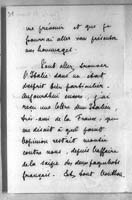 me prévenir et que je
pourrai aller vous présenter
mes hommages.
Vont aller trouver
l'Italie dans un état
d'esprit bien particulier.
Aujourd'hui encore, j'ai
reçu une lettre d'un Italien,
très ami de la France, qui
me disait à quel point
l'opinion restait montée
contre nous, depuis l'affaire
de la saisie des
français. Ils sont